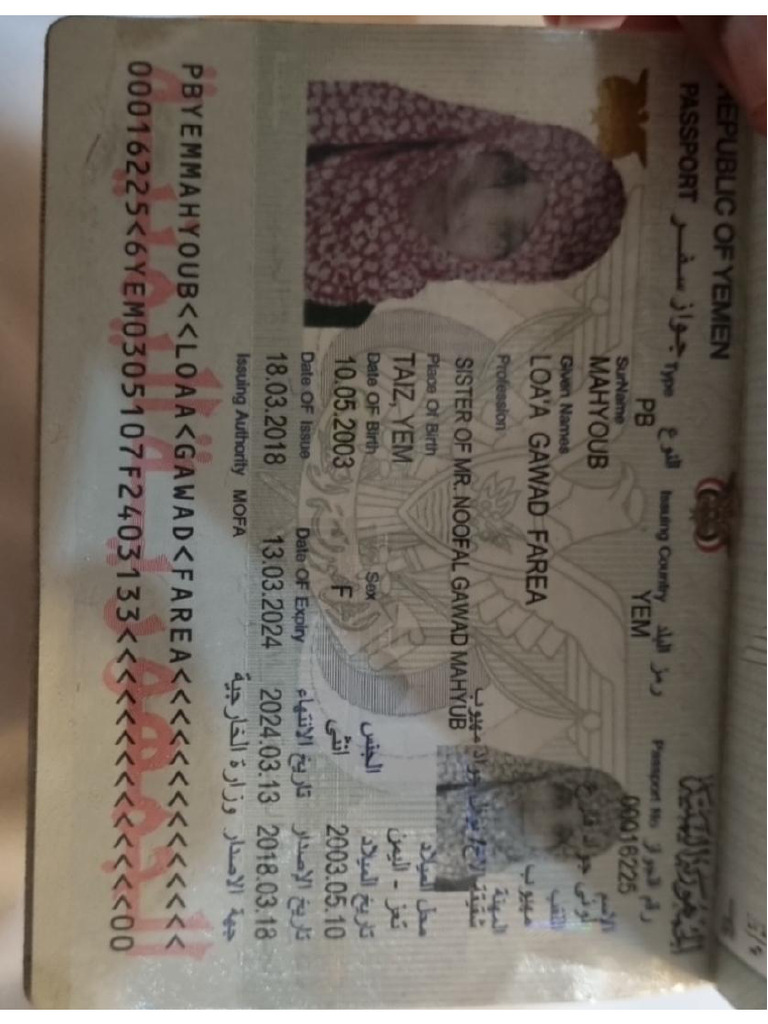 REPUBLIC OF YEMEN
الجمهورية اليمنية
PASSPORT جواز سفر
Type النوع Issuing Country رمز البلد Passport No. رقم الجواز
PB YEM 00016225
SurName
MAHYOUB
Given Names الإسم
LOA'A GAWAD FAREA
اللقب
Profession المهنة
SISTER OF MR. NOOFAL GAWAD MAHYUB
Place Of Birth محل الميلاد
TAIZ, YEM تعز - اليمن
Date OF Birth Sex الجنس تاريخ الميلاد
10.05.2003 F انثى 2003.05.10
Date OF Issue Date OF Expiry تاريخ الانتهاء تاريخ الإصدار
18.03.2018 13.03.2024 2024.03.13 2018.03.18
Issuing Authority MOFA وزارة الخارجية جهة الاصدار
PBYEMMAHYOUB<<LOAA<GAWAD<FAREA<<<<<<<<<<<<<<
00016225<6YEM0305107F2403133<<<<<<<<<<<<<<00